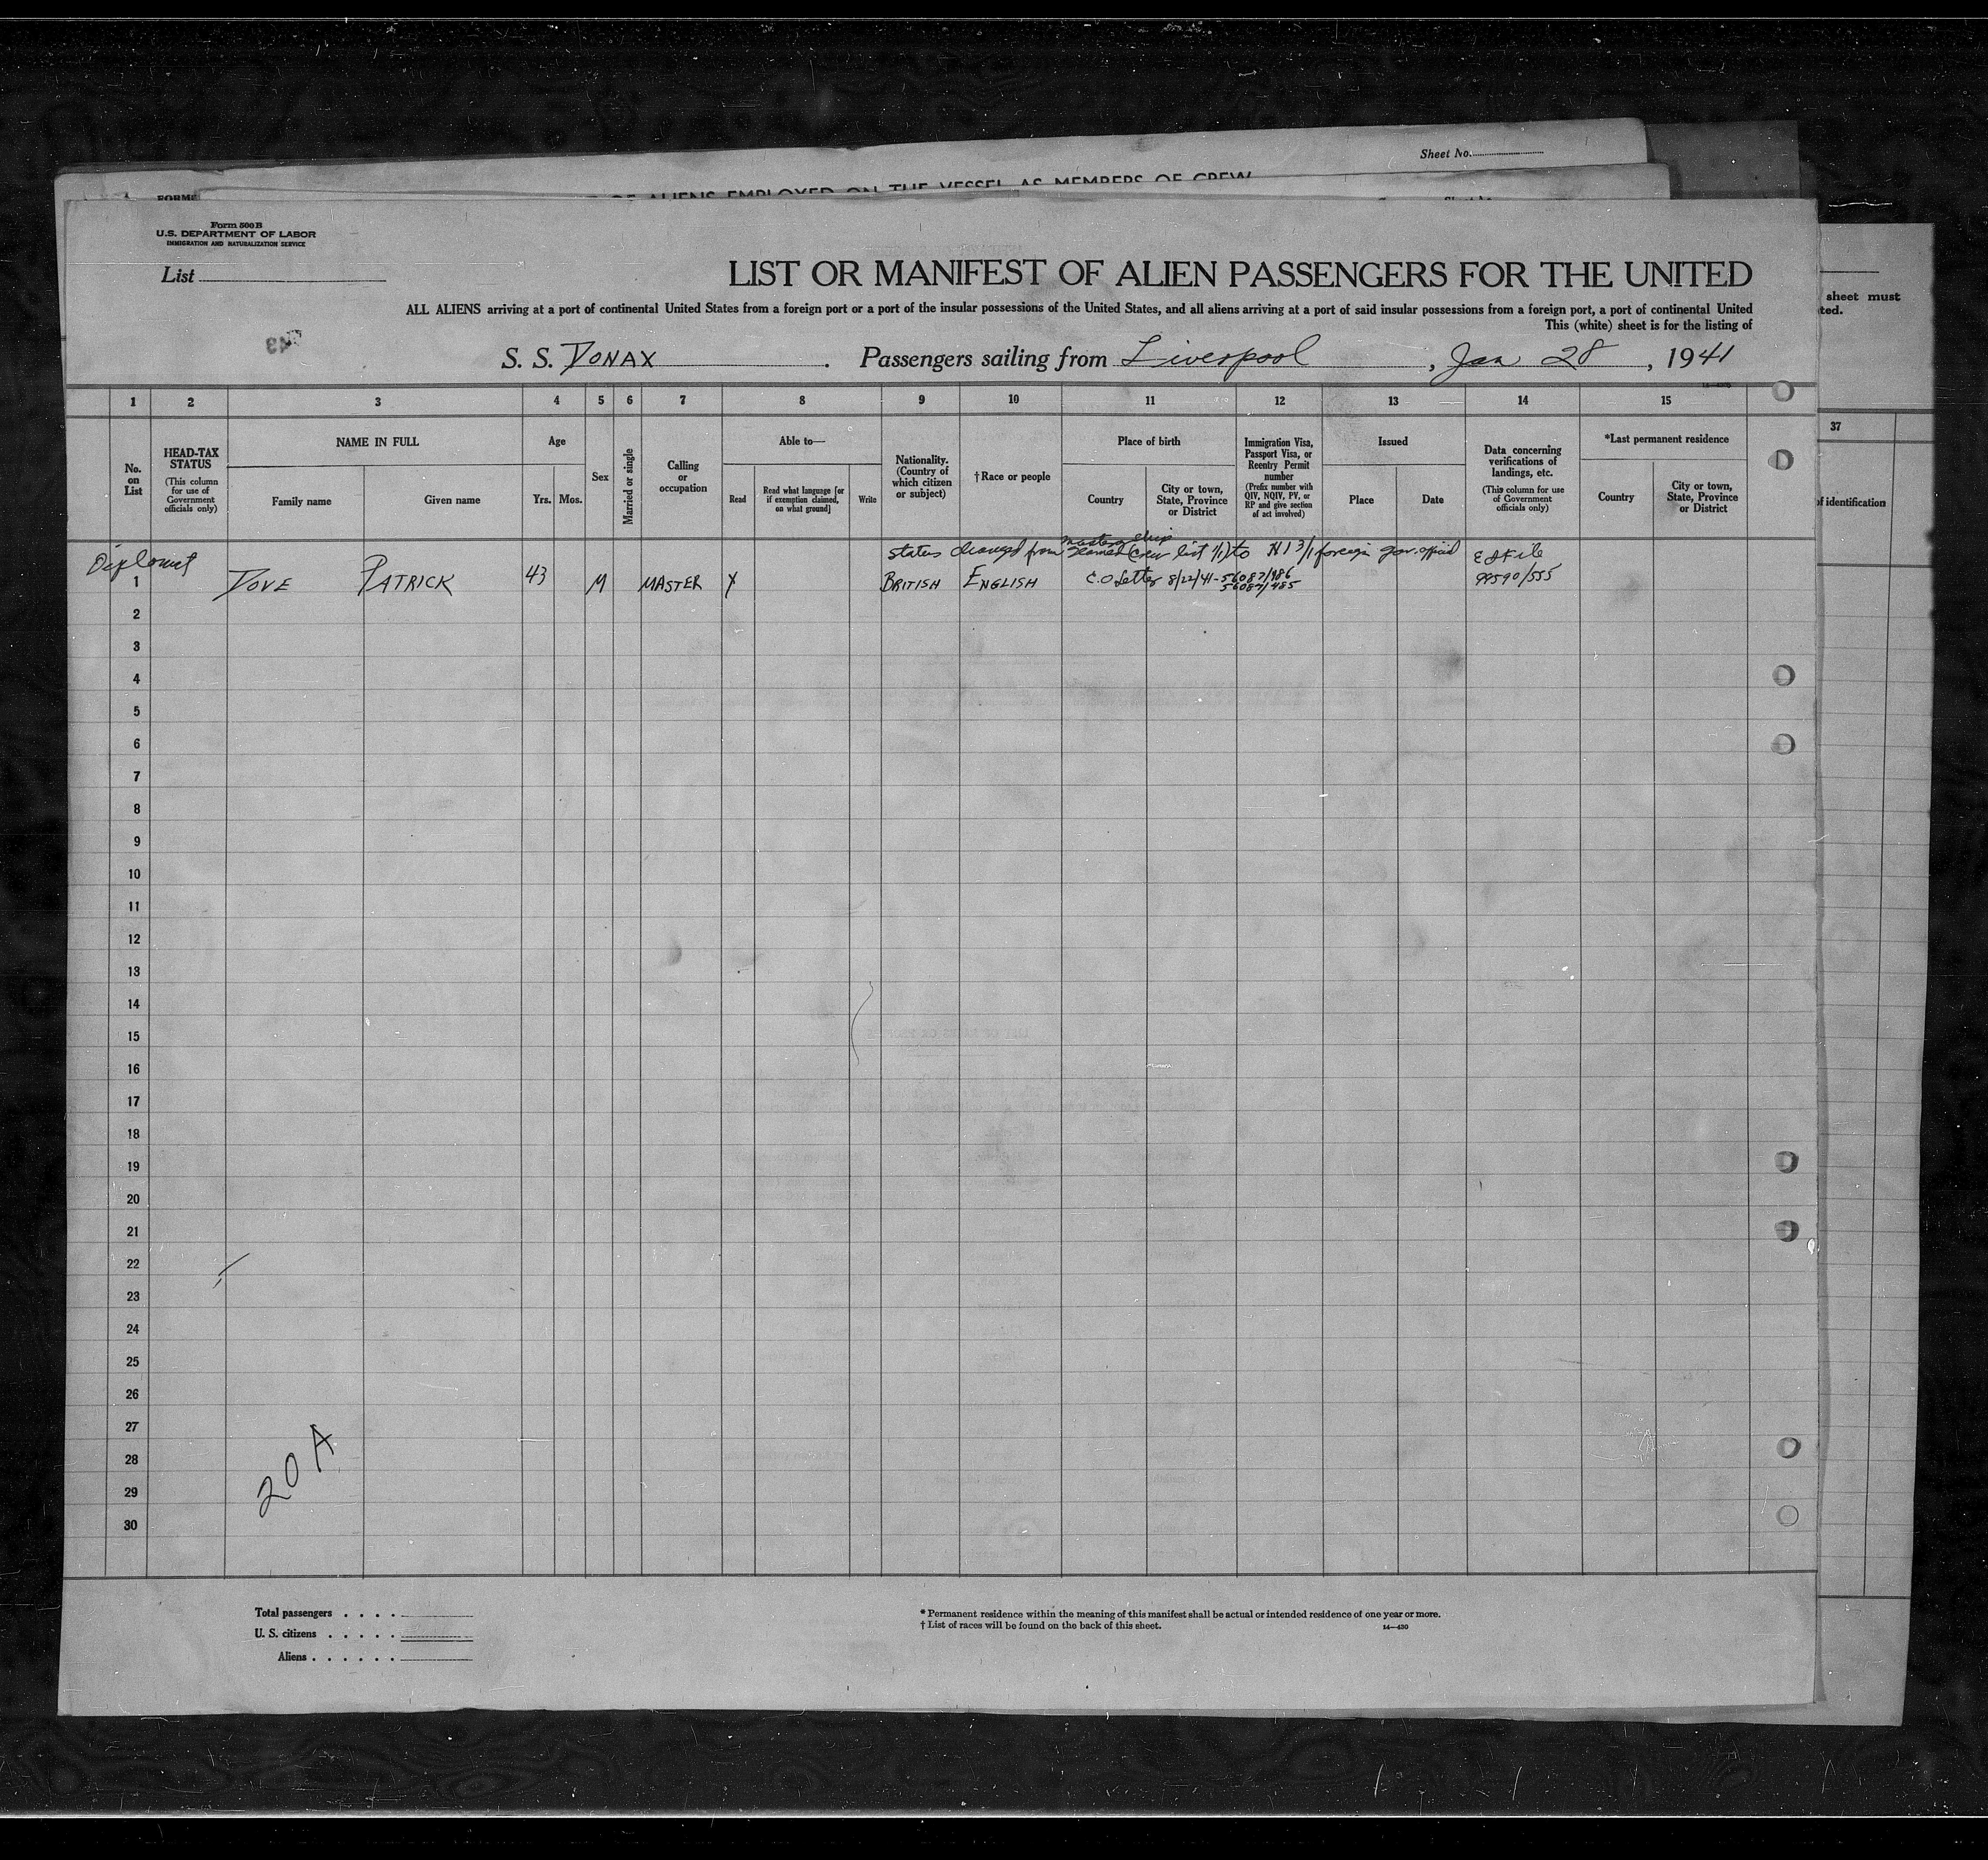 Sheet No.
FORM
OF ALIENS EMPLOYED ON THE VESSEL AS MEMBERS OF CREW
Form 500 B
U.S. DEPARTMENT OF LABOR
IMMIGRATION AND NATURALIZATION SERVICE
List
LIST OR MANIFEST OF ALIEN PASSENGERS FOR THE UNITED
ALL ALIENS arriving at a port of continental United States from a foreign port or a port of the insular possessions of the United States, and all aliens arriving at a port of said insular possessions from a foreign port, a port of continental United
This (white) sheet is for the listing of
sheet must
ted.
S. S. DONAX . Passengers sailing from Liverpool , Jan 28 , 1941
1 2 3 4 5 6 7 8 9 10 11 12 13 14 15
37
No. on List
HEAD-TAX STATUS
(This column for use of Government officials only)
NAME IN FULL
Family name
Given name
Age
Yrs. Mos.
Sex
Married or single
Calling or occupation
Able to—
Read
Read what language [or if exemption claimed, on what ground]
Write
Nationality. (Country of which citizen or subject)
†Race or people
Place of birth
Country
City or town, State, Province or District
Immigration Visa, Passport Visa, or Reentry Permit number
(Prefix number with QIV, NQIV, PV, or RP and give section of act involved)
Issued
Place
Date
Data concerning verifications of landings, etc.
(This column for use of Government officials only)
*Last permanent residence
Country
City or town, State, Province or District
of identification
master ship
Diplomat status changed from seaman (Crew list 1/1) to N1 3/1 foreign gov. official E&File
1 DOVE PATRICK 43 M MASTER Y BRITISH ENGLISH C.O Letter 8/22/41-56087/486 99590/555
56087/485
2
3
4
5
6
7
8
9
10
11
12
13
14
15
16
17
18
19
20
21
22
23
24
25
26
27
28
29
30
20 A
Total passengers
U. S. citizens
Aliens
* Permanent residence within the meaning of this manifest shall be actual or intended residence of one year or more.
† List of races will be found on the back of this sheet.
14—430